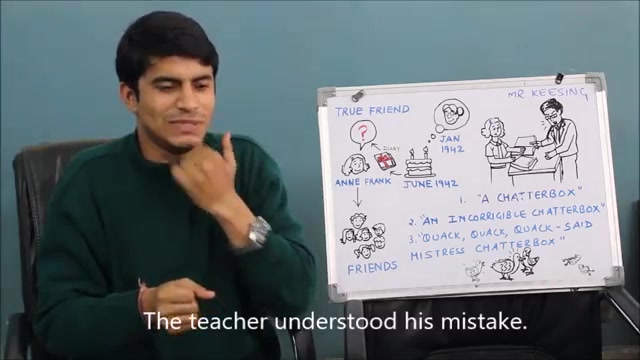 TRUE FRIEND
MR KEESING
?
DIARY
JAN
1942
ANNE FRANK
JUNE 1942
FRIENDS
1. "A CHATTERBOX"
2. "AN INCORRIGIBLE CHATTERBOX"
3. "QUACK, QUACK, QUACK - SAID
MISTRESS CHATTERBOX"
The teacher understood his mistake.